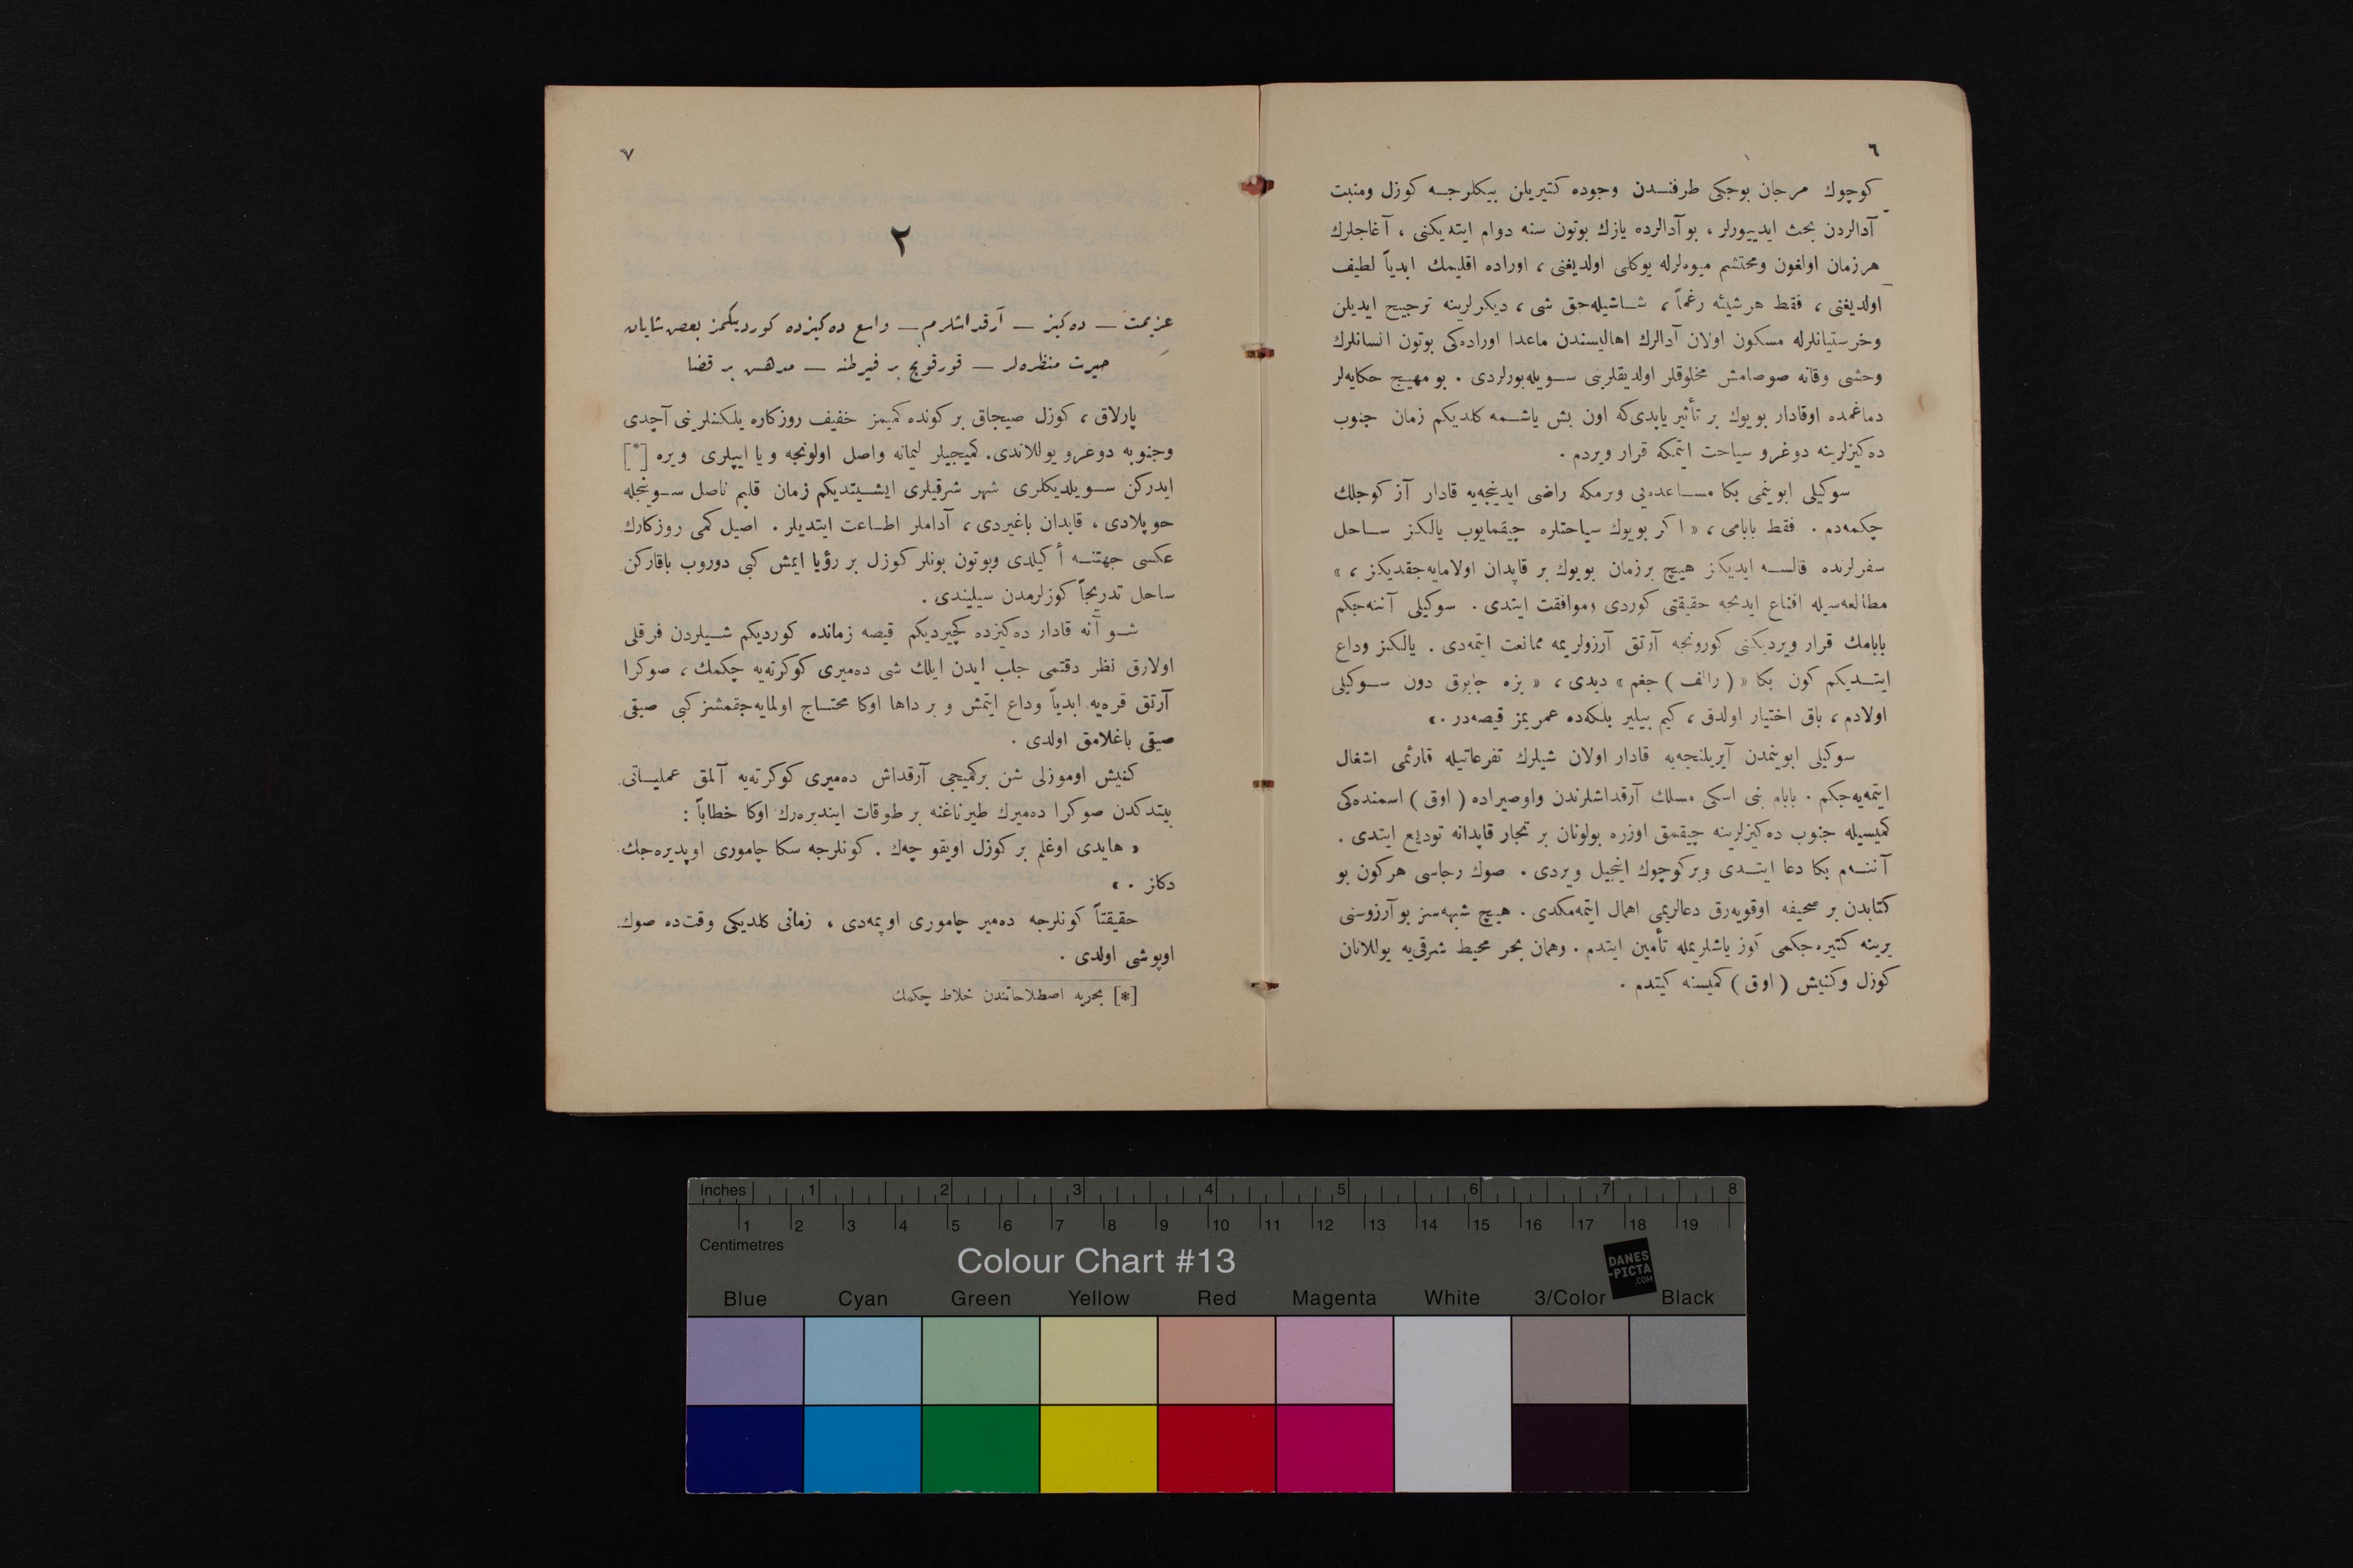 ٦
كوچوك مرجان بوجكی طرفنـدن وجوده كتيريلن بيكلرجـه كوزل ومنبت
آدالردن بحث ايدييورلر ، بو آدالرده يازك بوتون سنه دوام ايتديكنی ، آغاجلرك
هر زمان اولغون ومحتشم ميوه‌لرله يوكلی اولديغنی ، اوراده اقليمك ابدياً لطيف
اولديغنی ، فقط هر شيئه رغماً ، شـاشيله‌جق شی ، ديكرلرينه ترجيح ايديلن
وخرستيانلرله مسكون اولان آدالرك اهاليسندن ماعدا اوراده‌كی بوتون انسانلرك
وحشی وقانه صوصامش مخلوقلر اولديقلرينی سـويله‌يورلردی . بو مهيج حكايه‌لر
دماغمده اوقادار بويوك بر تأثير ياپدی‌كه اون بش ياشـمه كلديكم زمان جنوب
ده‌كيزلرينه دوغرو سياحت ايتمكه قرار ويردم .
سوكيلی ابوينمی بكا مسـاعده‌يی ويرمكه راضی ايدينجه‌يه قادار آز كوجلك
چكمه‌دم . فقط بابامی ، « اكر بويوك سياحتلره چيقمايوب يالكز سـاحل
سفرلرنده قالسـه ايديكز هيچ برزمان بويوك بر قاپدان اولامايه‌جقديكز ، »
مطالعه‌سيله اقناع ايدنجه حقيقتی كوردی وموافقت ايتدی . سوكيلی آننه‌جكم
بابامك قرار ويرديكنی كورونجه آرتق آرزولريمه ممانعت ايتمه‌دی . يالكز وداع
ايتـديكم كون بكا « ( رالف ) جغم » ديدی ، « بزه چابوق دون سـوكيلی
اولادم ، باق اختيار اولدق ، كيم بيلير بلكه‌ده عمريمز قيصه‌در . »
سوكيلی ابوينمدن آيريلنجه‌يه قادار اولان شيلرك تفرعاتيله قارئمی اشغال
ايتمه‌يه‌جكم . بابام بنی اسكی مسلك آرقداشلرندن واوصيراده ( اوق ) اسمنده‌كی
كميسيله جنوب ده‌كيزلرينه چيقمق اوزره بولونان بر تجار قاپدانه توديع ايتدی .
آننـه‌م بكا دعا ايتـدی وبر كوچوك انجيل ويردی . صوك رجاسی هركون بو
كتابدن بر صحيفه اوقويه‌رق دعالريمی اهمال ايتمه‌مكدی . هيچ شبهه‌سز بو آرزوسنی
يرينه كتيره‌جكمی كوز ياشلريمله تأمين ايتدم . وهمان بحر محيط شرقی‌يه يوللانان
كوزل وكنيش ( اوق ) كميسنه كيتدم .
٧
٢
عزيمت — ده‌كيز — آرقداشلرم — واسع ده‌كيزده كورديكمز بعض شايان
حيرت منظره‌لر — قورقونج بر فيرطنه — مدهش بر قضا
پارلاق ، كوزل صيجاق بر كونده كميمز خفيف روزكاره يلكنلرينی آچدی
وجنوبه دوغرو يوللاندی. كميجيلر ليمانه واصل اولونجه ويا ايپلری ويره [*]
ايدركن سـويلديكلری شهر شرقيلری ايشـيتديكم زمان قلبم ناصل سـوينجله
حوپلادی ، قاپدان باغيردی ، آداملر اطـاعت ايتديلر . اصيل كمی روزكارك
عكسی جهتنـه أكيلدی وبوتون بونلر كوزل بر رؤيا ايمش كبی دوروب باقاركن
ساحل تدريجاً كوزلرمدن سيليندی .
شـو آنه قادار ده‌كيزده كچيرديكم قيصه زمانده كورديكم شـيلردن فرقلی
اولارق نظر دقتمی جلب ايدن ايلك شی ده‌ميری كوكرته‌يه چكمك ، صوكرا
آرتق قره‌يه ابدياً وداع ايتمش و بر داها اوكا محتـاج اولمايه‌جقمشز كبی صيقی
صيقی باغلامق اولدی .
كنيش اوموزلی شن بركميجی آرقداش ده‌ميری كوكرته‌يه آلمق عمليـاتی
بيتدكدن صوكرا ده‌ميرك طيرناغنه بر طوقات اينديره‌رك اوكا خطاباً :
« هايدی اوغلم بر كوزل اويقو چه‌ك . كونلرجه سكا چاموری اوپديره‌جك
دكلز . »
حقيقتاً كونلرجه ده‌مير چاموری اوپمه‌دی ، زمانی كلديكی وقت‌ده صوك
اوپوشی اولدی .
[*] بحريه اصطلاحاتندن خلاط چكمك
Inches 1 2 3 4 5 6 7 8
1 2 3 4 5 6 7 8 9 10 11 12 13 14 15 16 17 18 19
Centimetres
Colour Chart #13
DANES
-PICTA
.COM
Blue Cyan Green Yellow Red Magenta White 3/Color Black